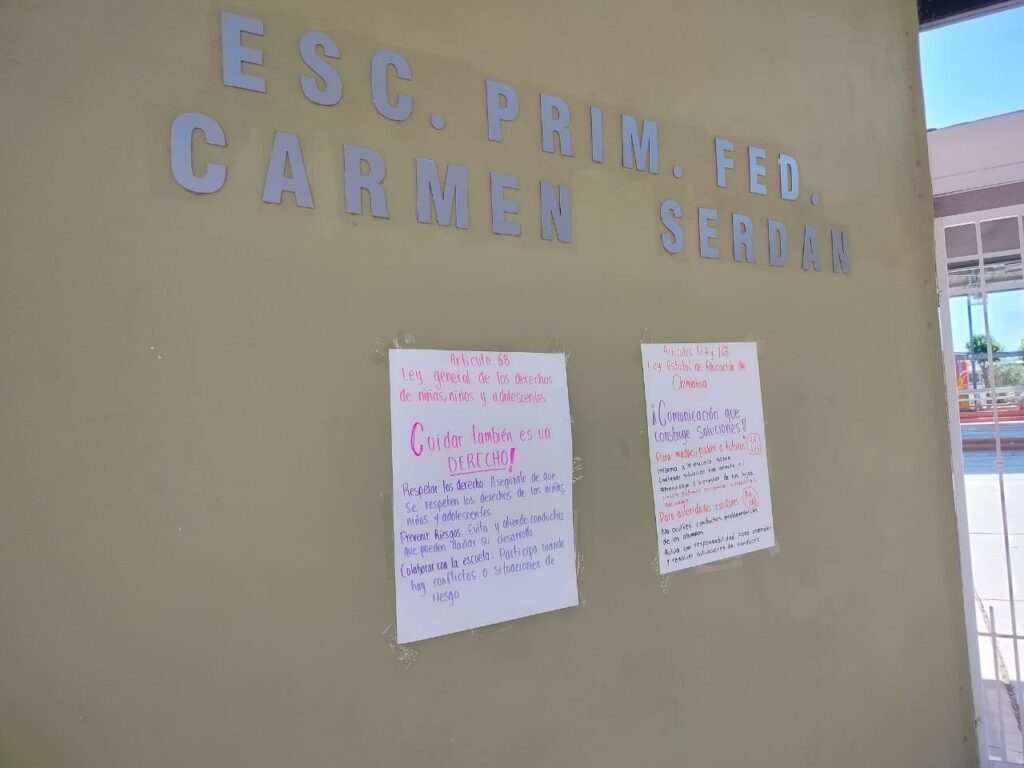 ESC. PRIM. FED.
CARMEN SERDAN
Artículo 68
Ley general de los derechos
de niñas, niños y adolescentes
Cuidar también es un
DERECHO!
Respetar los derecho: Asegúrate de que
se respeten los derechos de las niñas,
niños y adolescentes.
Prevenir Riesgos: Evita y atiende conductas
que pueden dañar su desarrollo
Colaborar con la escuela: Participa cuando
hay conflictos o situaciones de
riesgo
Artículos y 168
Ley Estatal de Educación de
Chihuahua
¡Comunicación que
construye soluciones!
Para madres, padres o tutores
Informa a la escuela sobre
cualquier situación que afecte el
aprendizaje o bienestar de tus hijos
Juntos podemos encontrar soluciones
Para autoridades escolares
No ocultes conductas problemáticas
de los alumnos
Actúa con responsabilidad para atender
y resolver situaciones de conducta